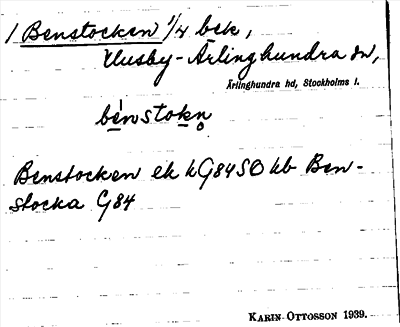 1 Benstocken 1/4 bek,
Husby-Ärlinghundra sn,
Ärlinghundra hd, Stockholms l.
bénstokn̥
Benstocken ek hG84SO hb Ben-
stocka G84
KARIN OTTOSSON 1939.